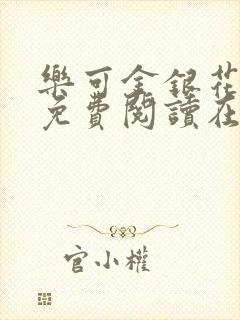 樂可金銀花
免費閱讀在
官小權